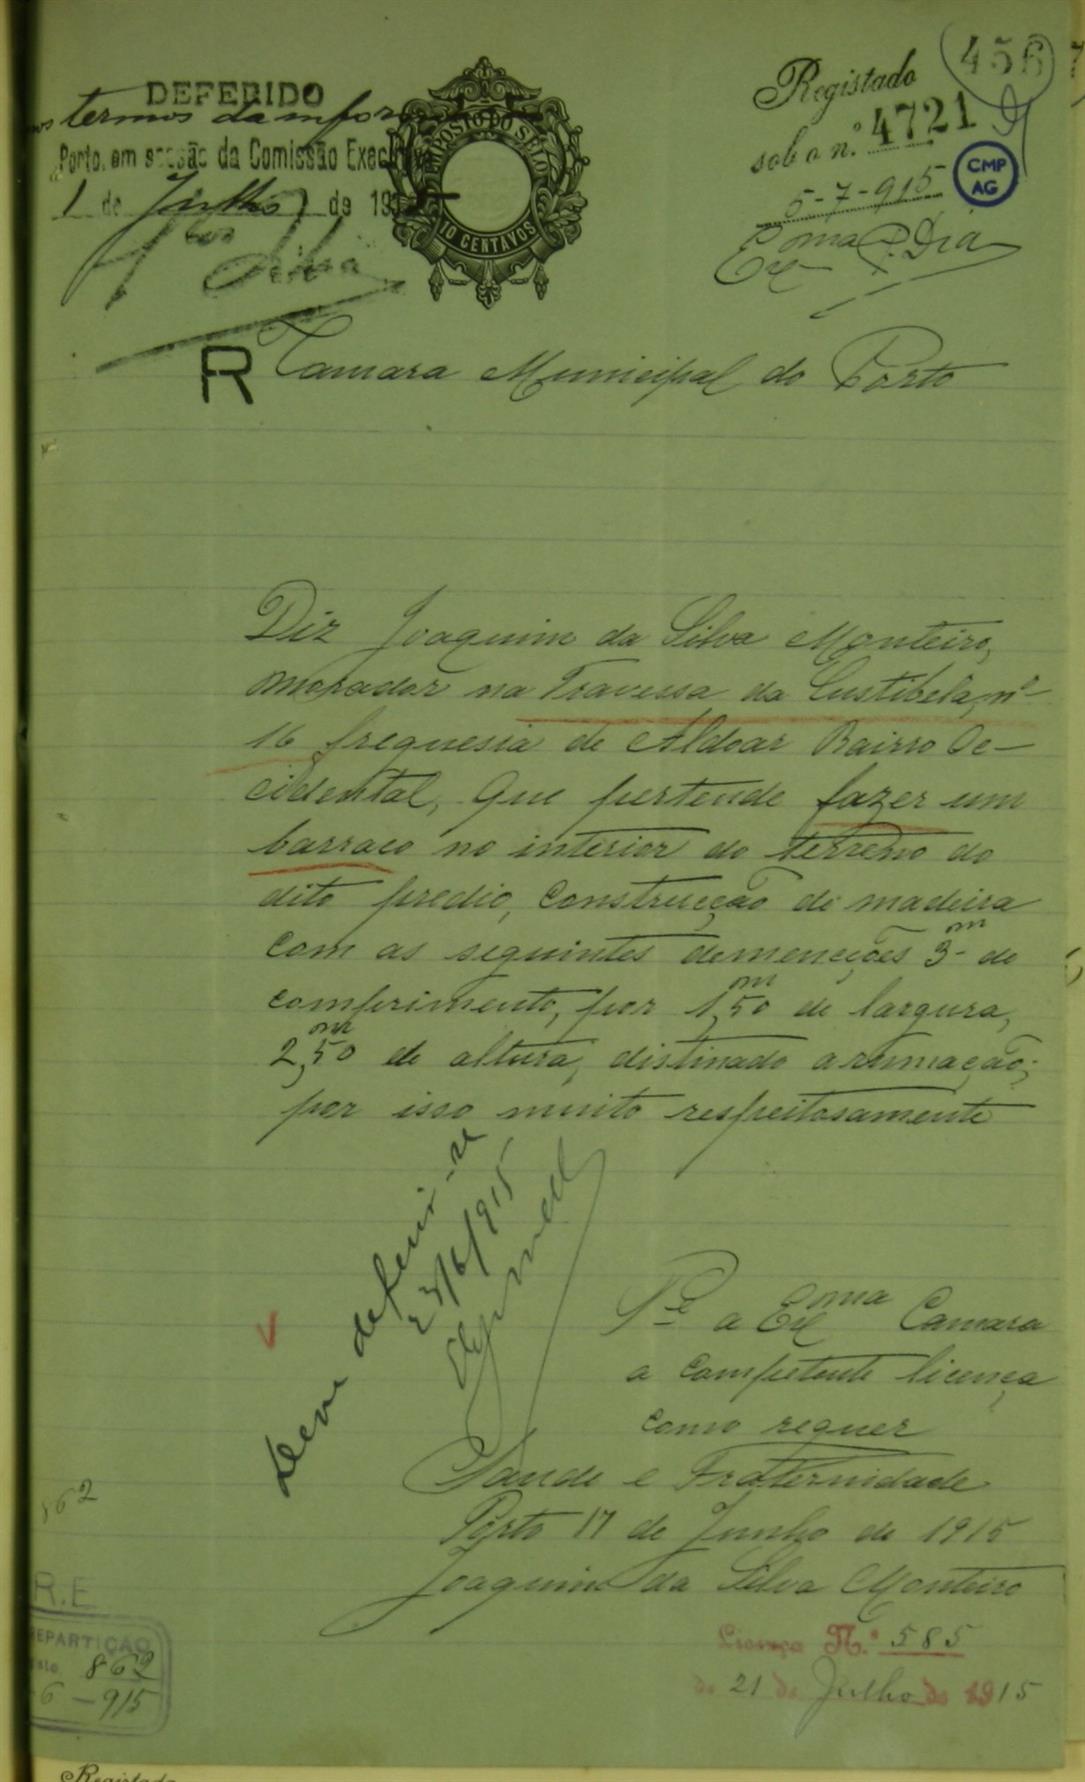 456
DEFERIDO
nos termos da inform
Porto, em sessão da Comissão Execu
1 de Julho de 191
Silva
IMPOSTO DO SELO
10 CENTAVOS
Registado
sob o n.º 4721
5-7-915
CMP
AG
R
Camara Municipal do Porto
Diz Joaquim da Silva Monteiro,
morador na Travessa da Custibela, nº
16 freguesia de Aldoar Bairro Oc-
cidental, que pertende fazer um
barraco no interior do terreno do
dito predio, construcção de madeira
com as seguintes demenções 3m de
comprimento, por 1,m50 de largura,
2,m50 de altura, distinado arumação;
por isso muito respeitosamente
Deve deferir-se
23/6/915
Pe a Exma Camara
a competente licença
como requer
Saude e Fraternidade
Porto 17 de Junho de 1915
Joaquim da Silva Monteiro
862
R.E
REPARTIÇÃO
862
6-915
Licença N.º 585
de 21 de Julho de 1915
Registado